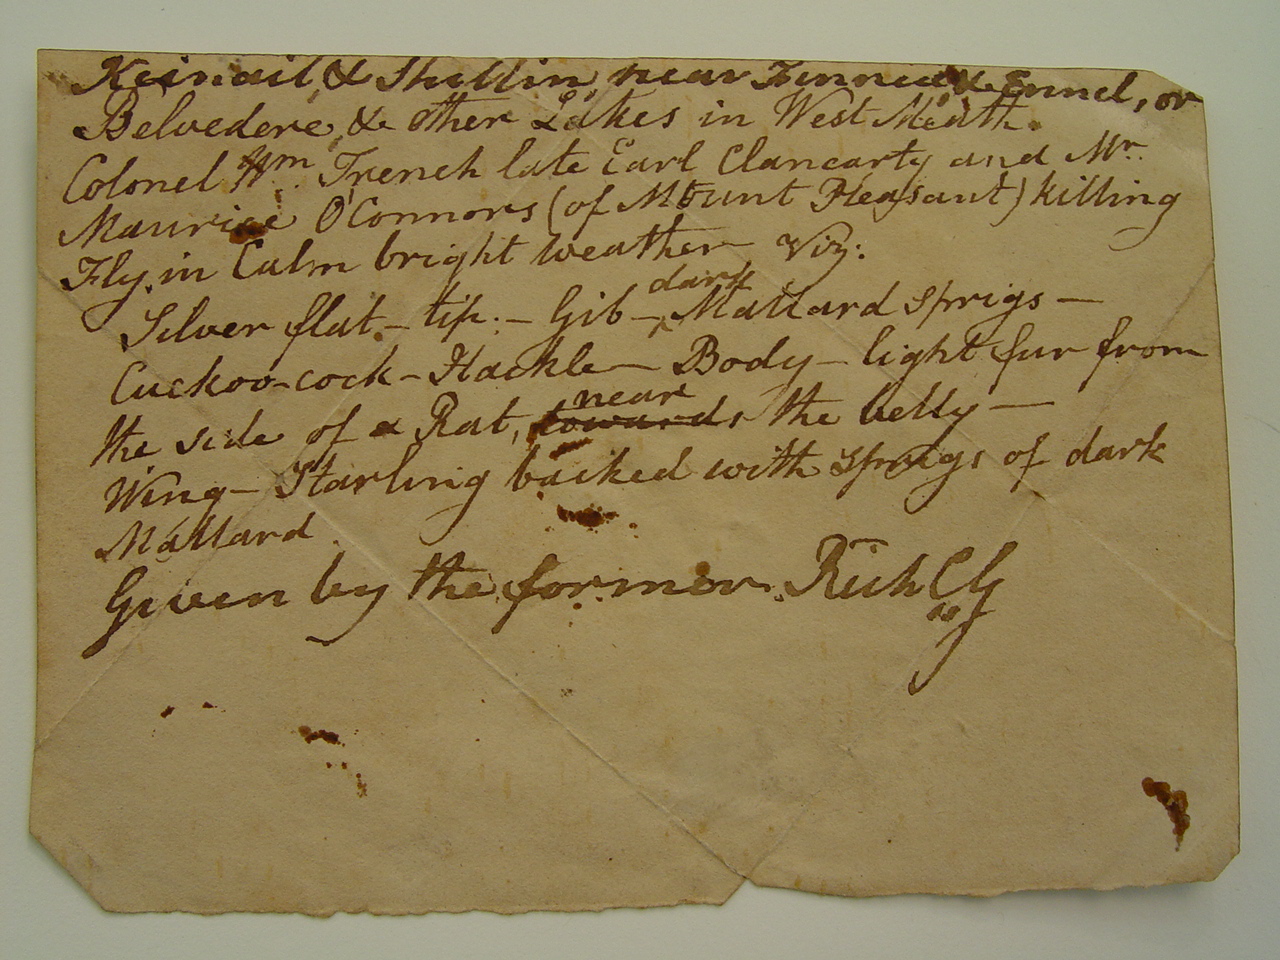 Keinail, & Shellin, near Finnea, & Ennel, or
Belvedere, & other Lakes in West Meath.
Colonel Wm. Trench late Earl Clancarty and Mr.
Maurice O'Connors (of Mount Pleasant) killing
Fly, in Calm bright weather Viz:
Silver flat - tip. - Gib - dark Mallard sprigs -
Cuckoo-cock - Hackle - Body - light fur from
the side of a Rat, towards near the belly -
Wing - Starling backed with sprigs of dark
Mallard.
Given by the former. Rich